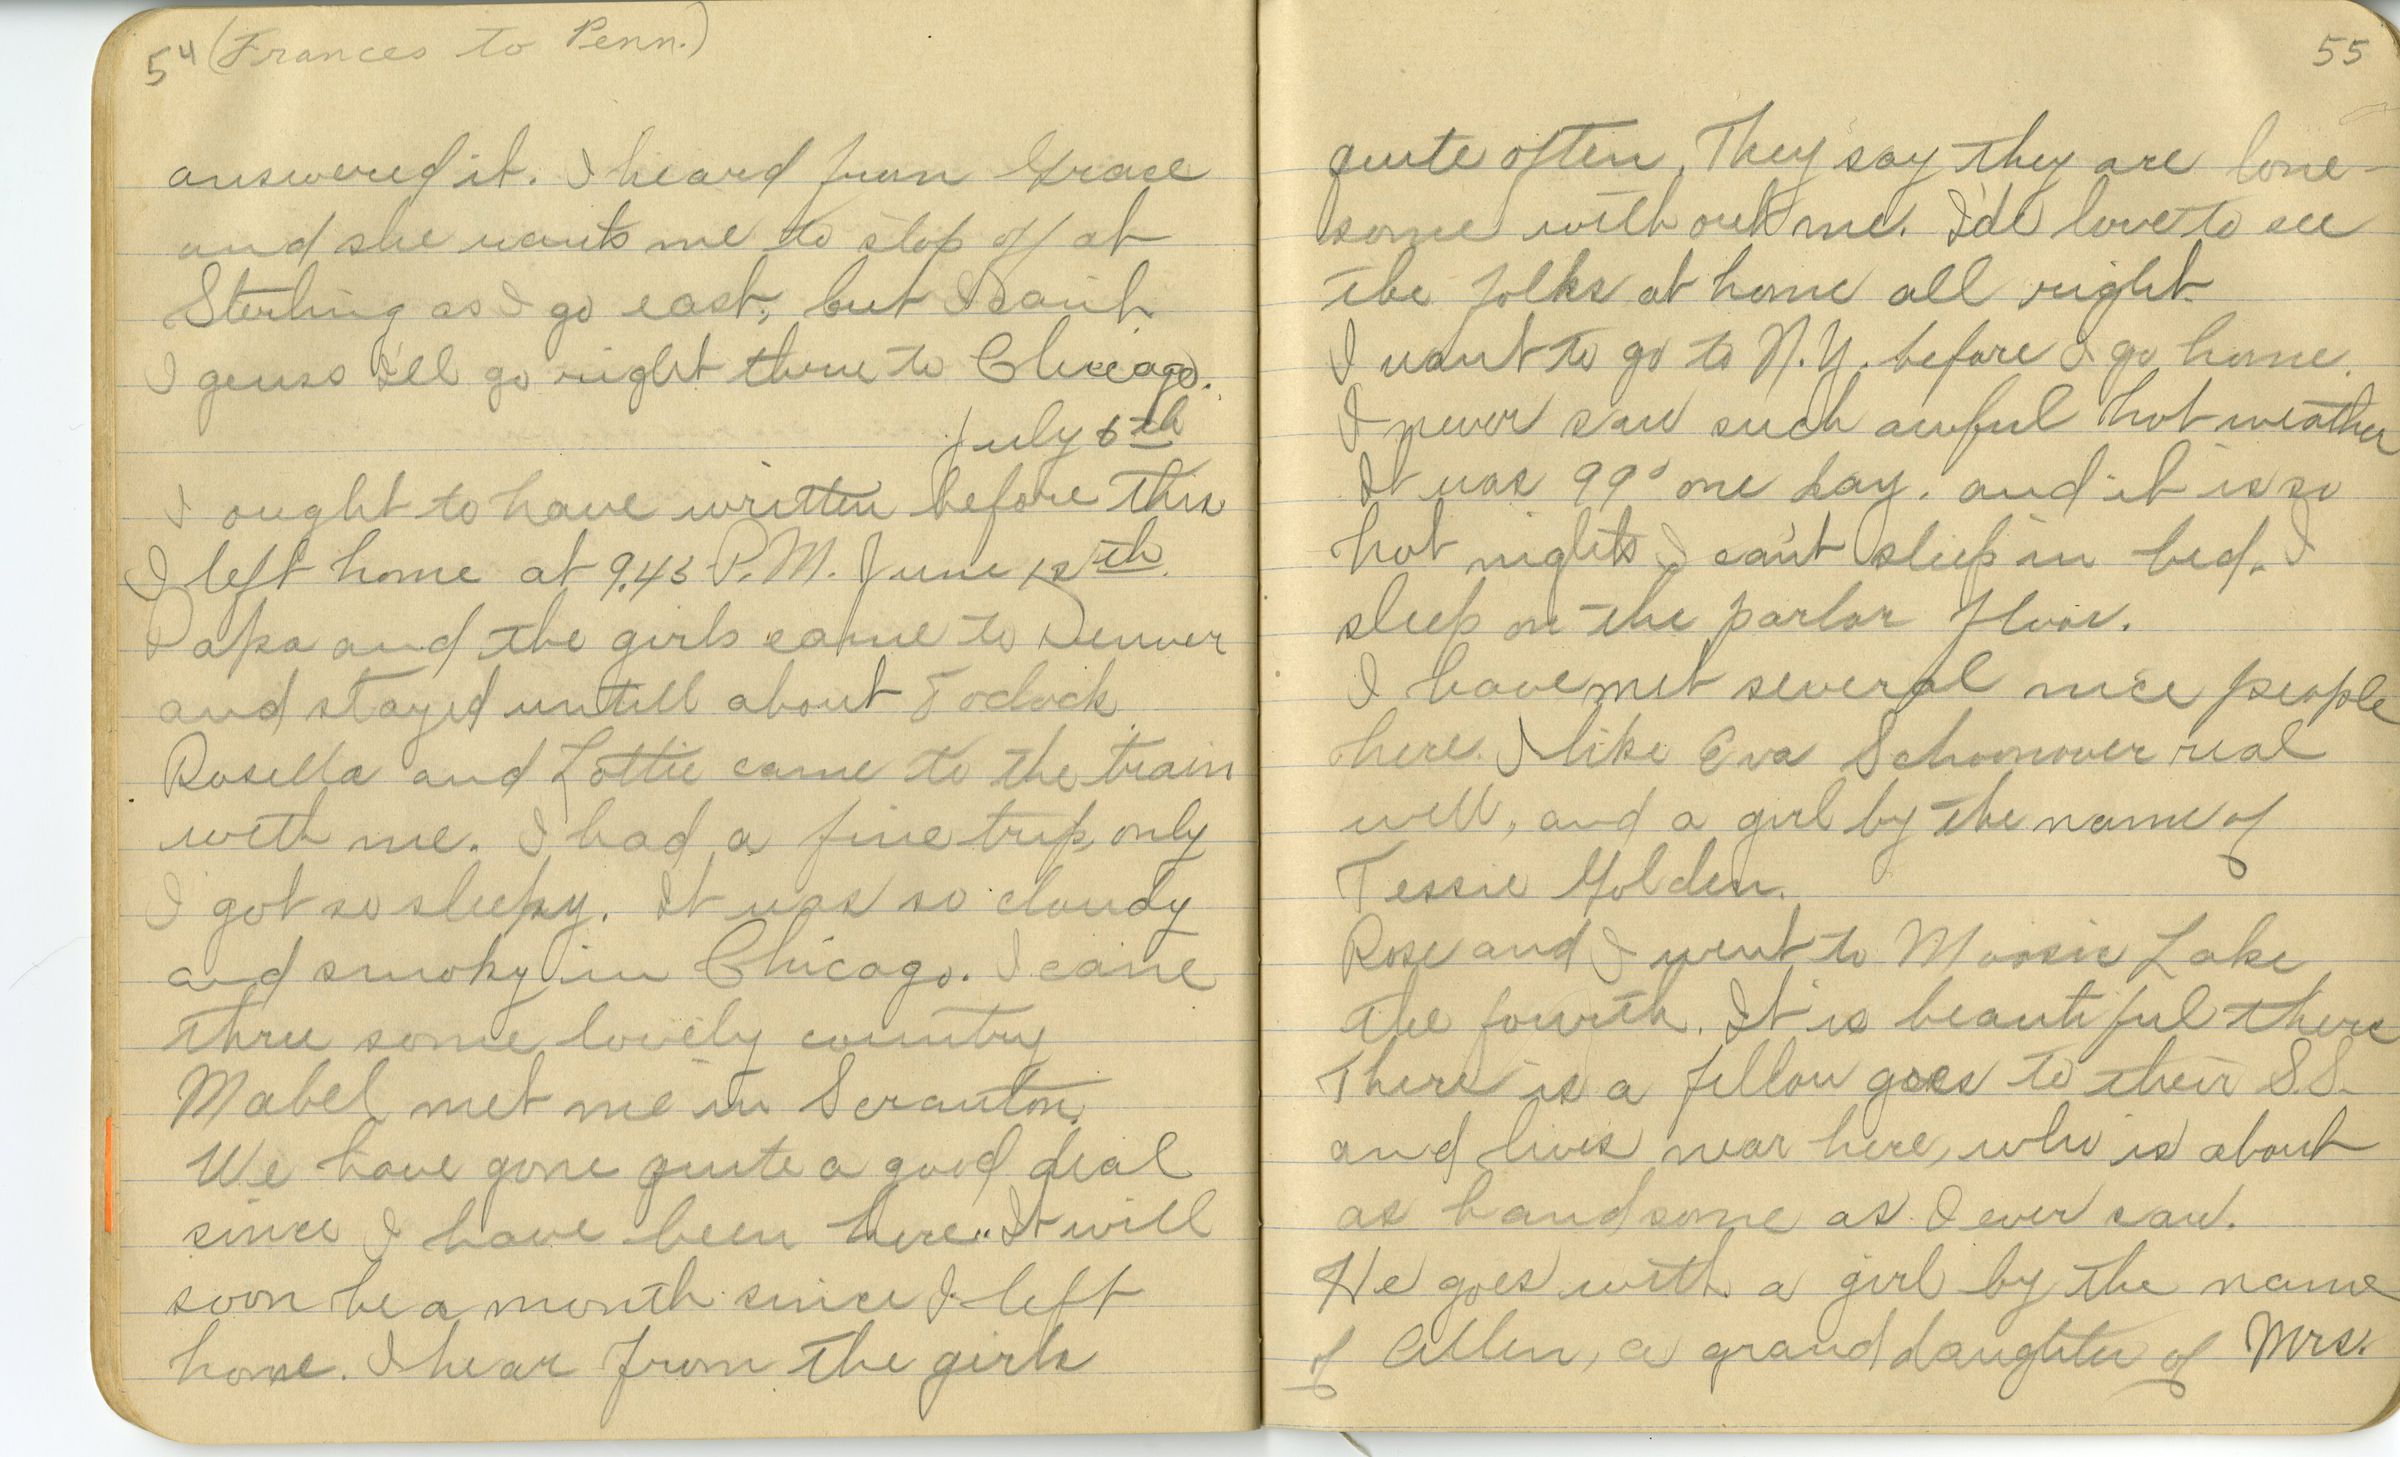 54 (Frances to Penn.)
answered it. I heard from Grace
and she wants me to stop off at
Sterling as I go east, but I can't
I geuss I'll go right thrue to Chicago.
July 6th
I ought to have written before this
I left home at 9.45 P.M. June 12th.
Papa and the girls came to Denver
and stayed untill about 8 oclock
Rosella and Lottie came to the train
with me. I had a fine trip, only
I got so sleepy. It was so cloudy
and smoky in Chicago. I came
thrue some lovely country
Mabel met me in Scranton.
We have gone quite a good deal
since I have been here. It will
soon be a month since I left
home. I hear from the girls
55
quite often. They say they are lone-
some with out me. I'de love to see
the folks at home all right.
I want to go to N.Y. before I go home.
I never saw such awful hot weather
It was 99° one day. and it is so
hot nights I can't sleep in bed. I
sleep on the parlor floor.
I have met several nice people
here. I like Eva Schoonover real
well, and a girl by the name of
Tessie Golden.
Rose and I went to Moosic Lake
the fourth. It is beautiful there
There is a fellow goes to their S.S.
and lives near here, who is about
as handsome as I ever saw.
He goes with a girl by the name
of Allen, a granddaughter of Mrs.